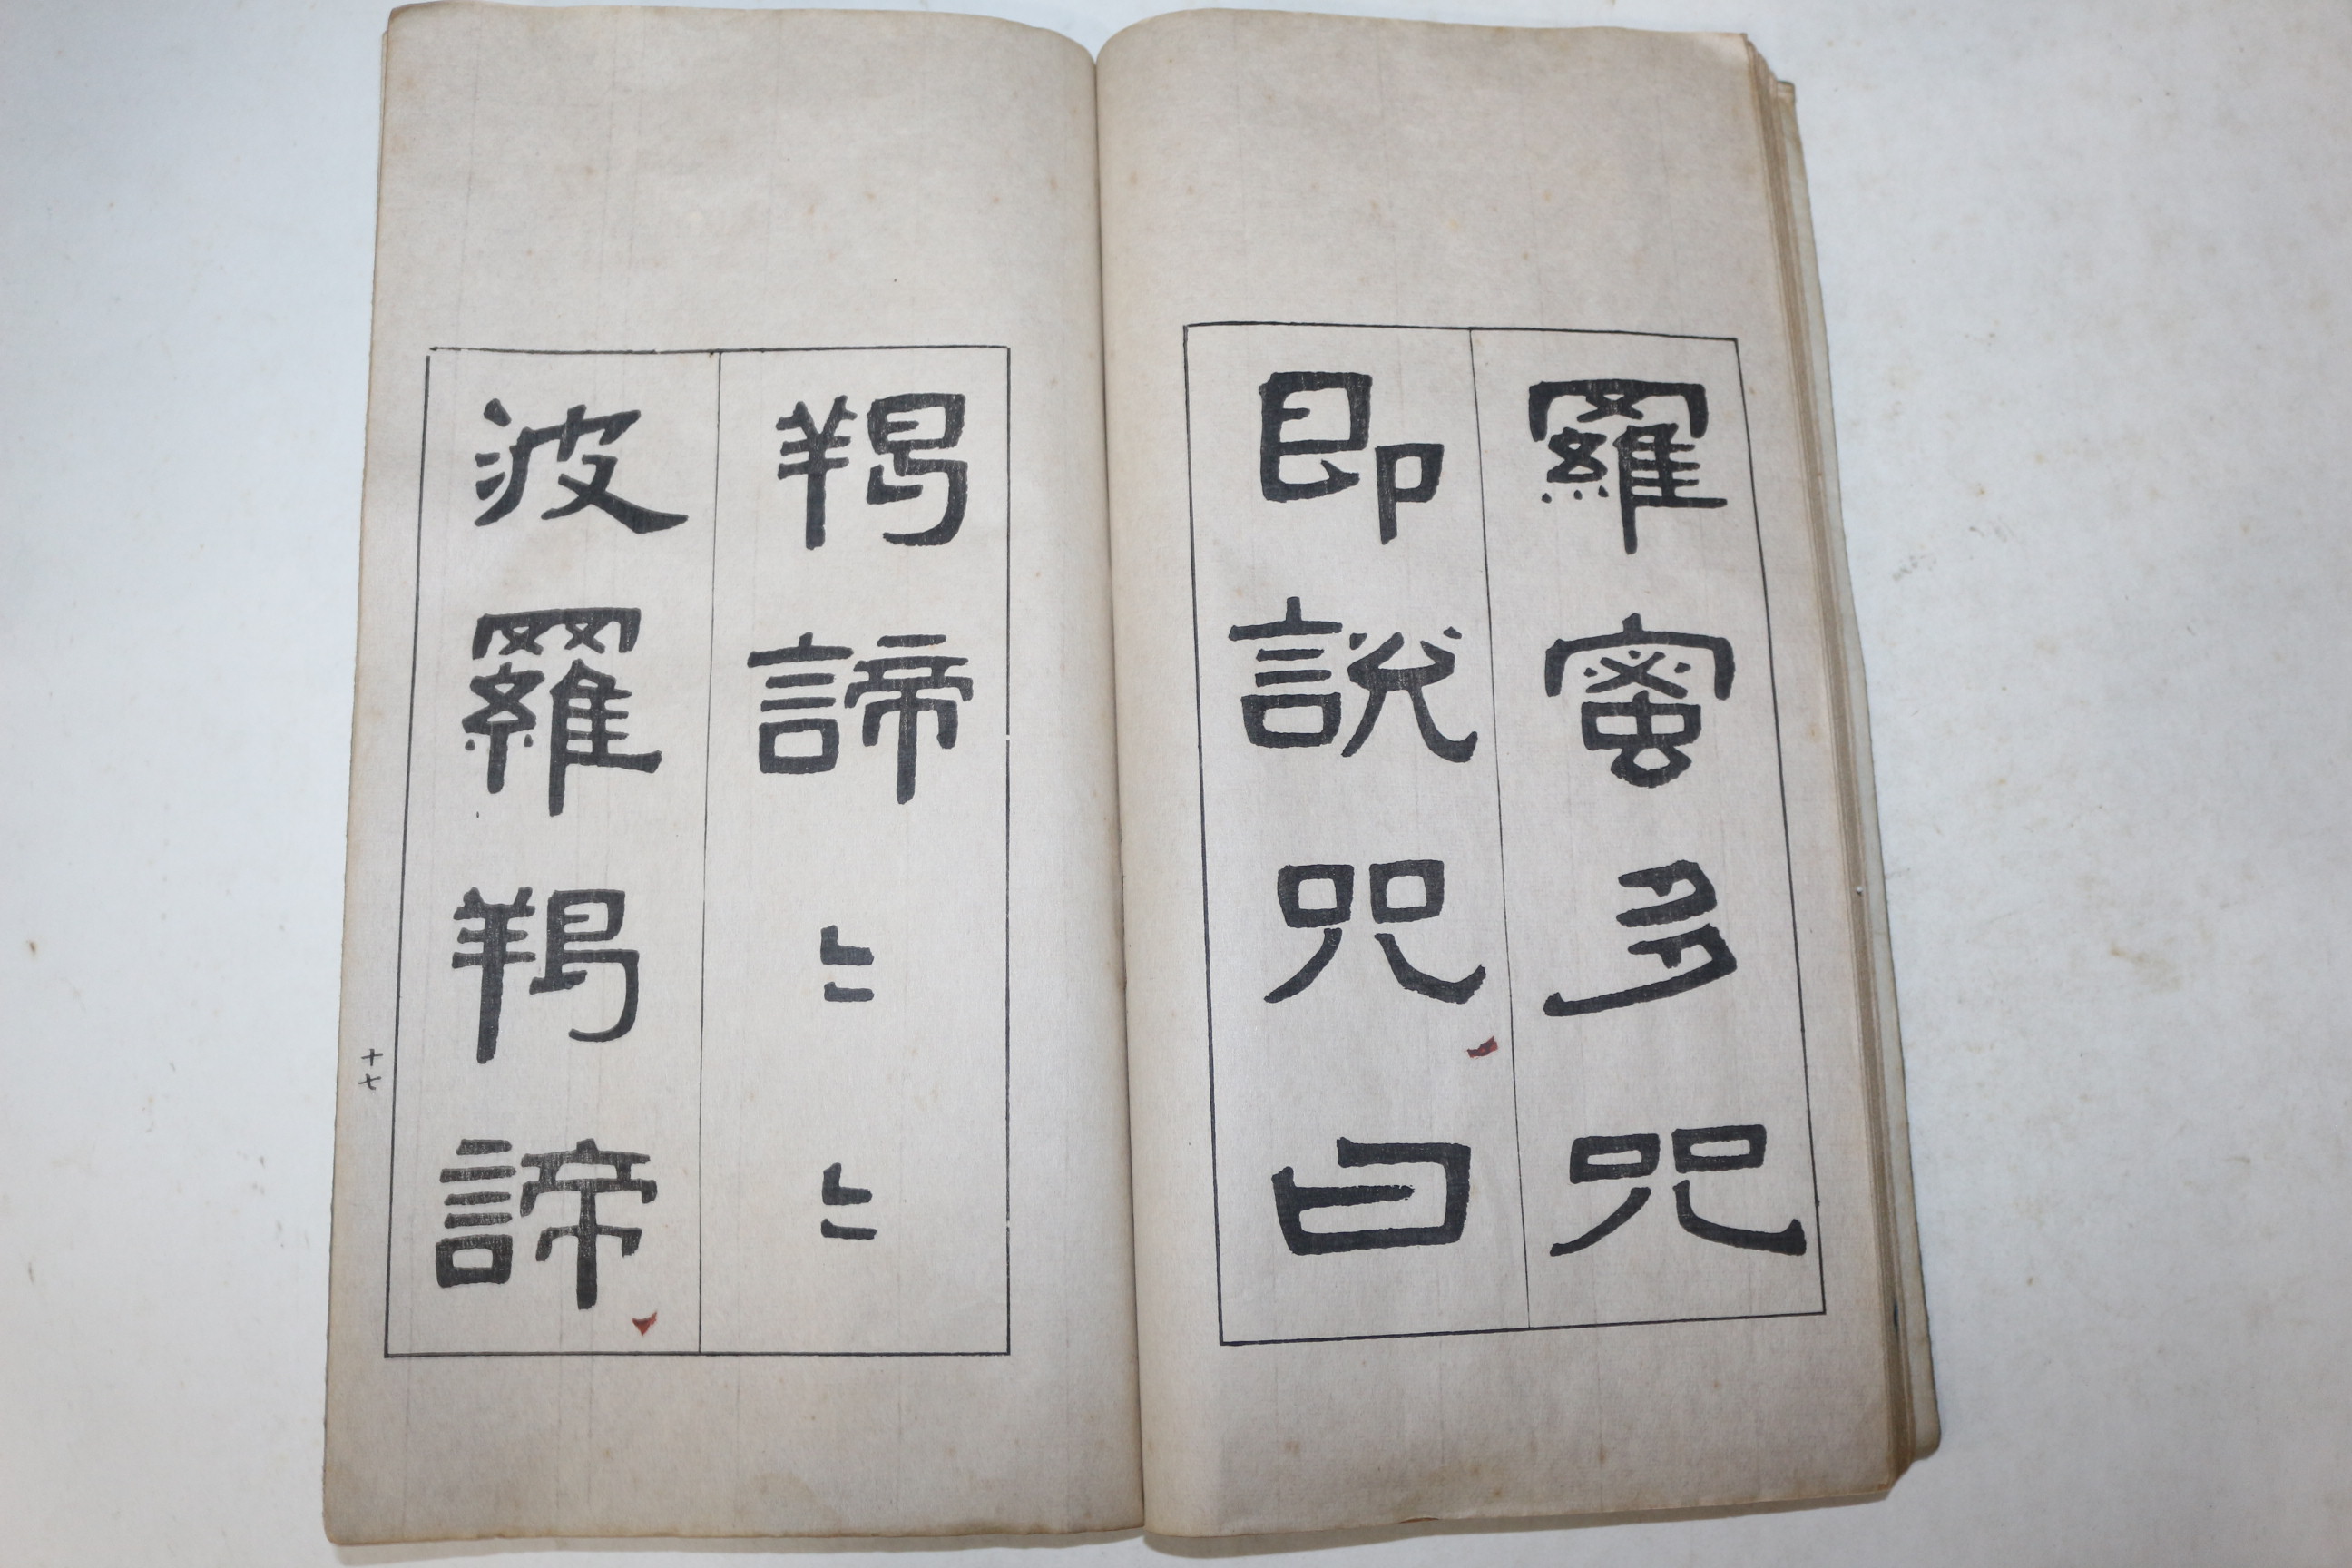 羅蜜多咒
即說咒曰
羯諦〻〻
波羅羯諦
十七